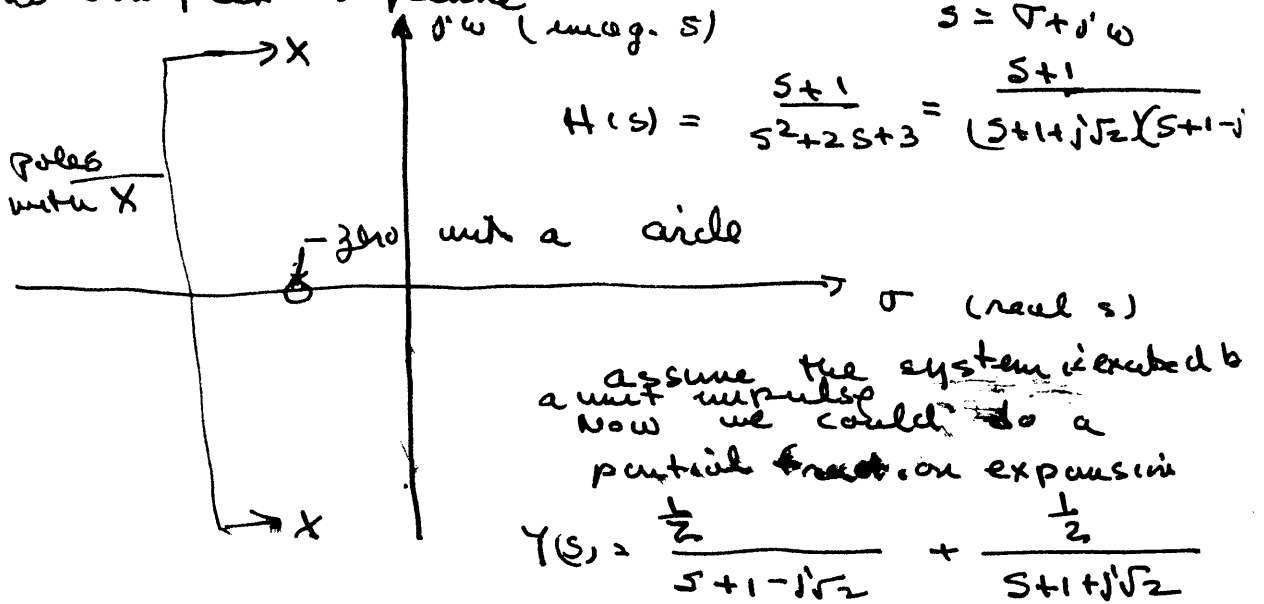 jω (imag. s)
s = σ + jω
H(s) = \frac{s+1}{s^2+2s+3} = \frac{s+1}{(s+1+j√2)(s+1-j
poles
with X
X
zero with a circle
σ (real s)
assume the system is excited b
a unit impulse
Now we could do a
partial fraction expansion
X
Y(s) = \frac{\frac{1}{2}}{s+1-j√2} + \frac{\frac{1}{2}}{s+1+j√2}